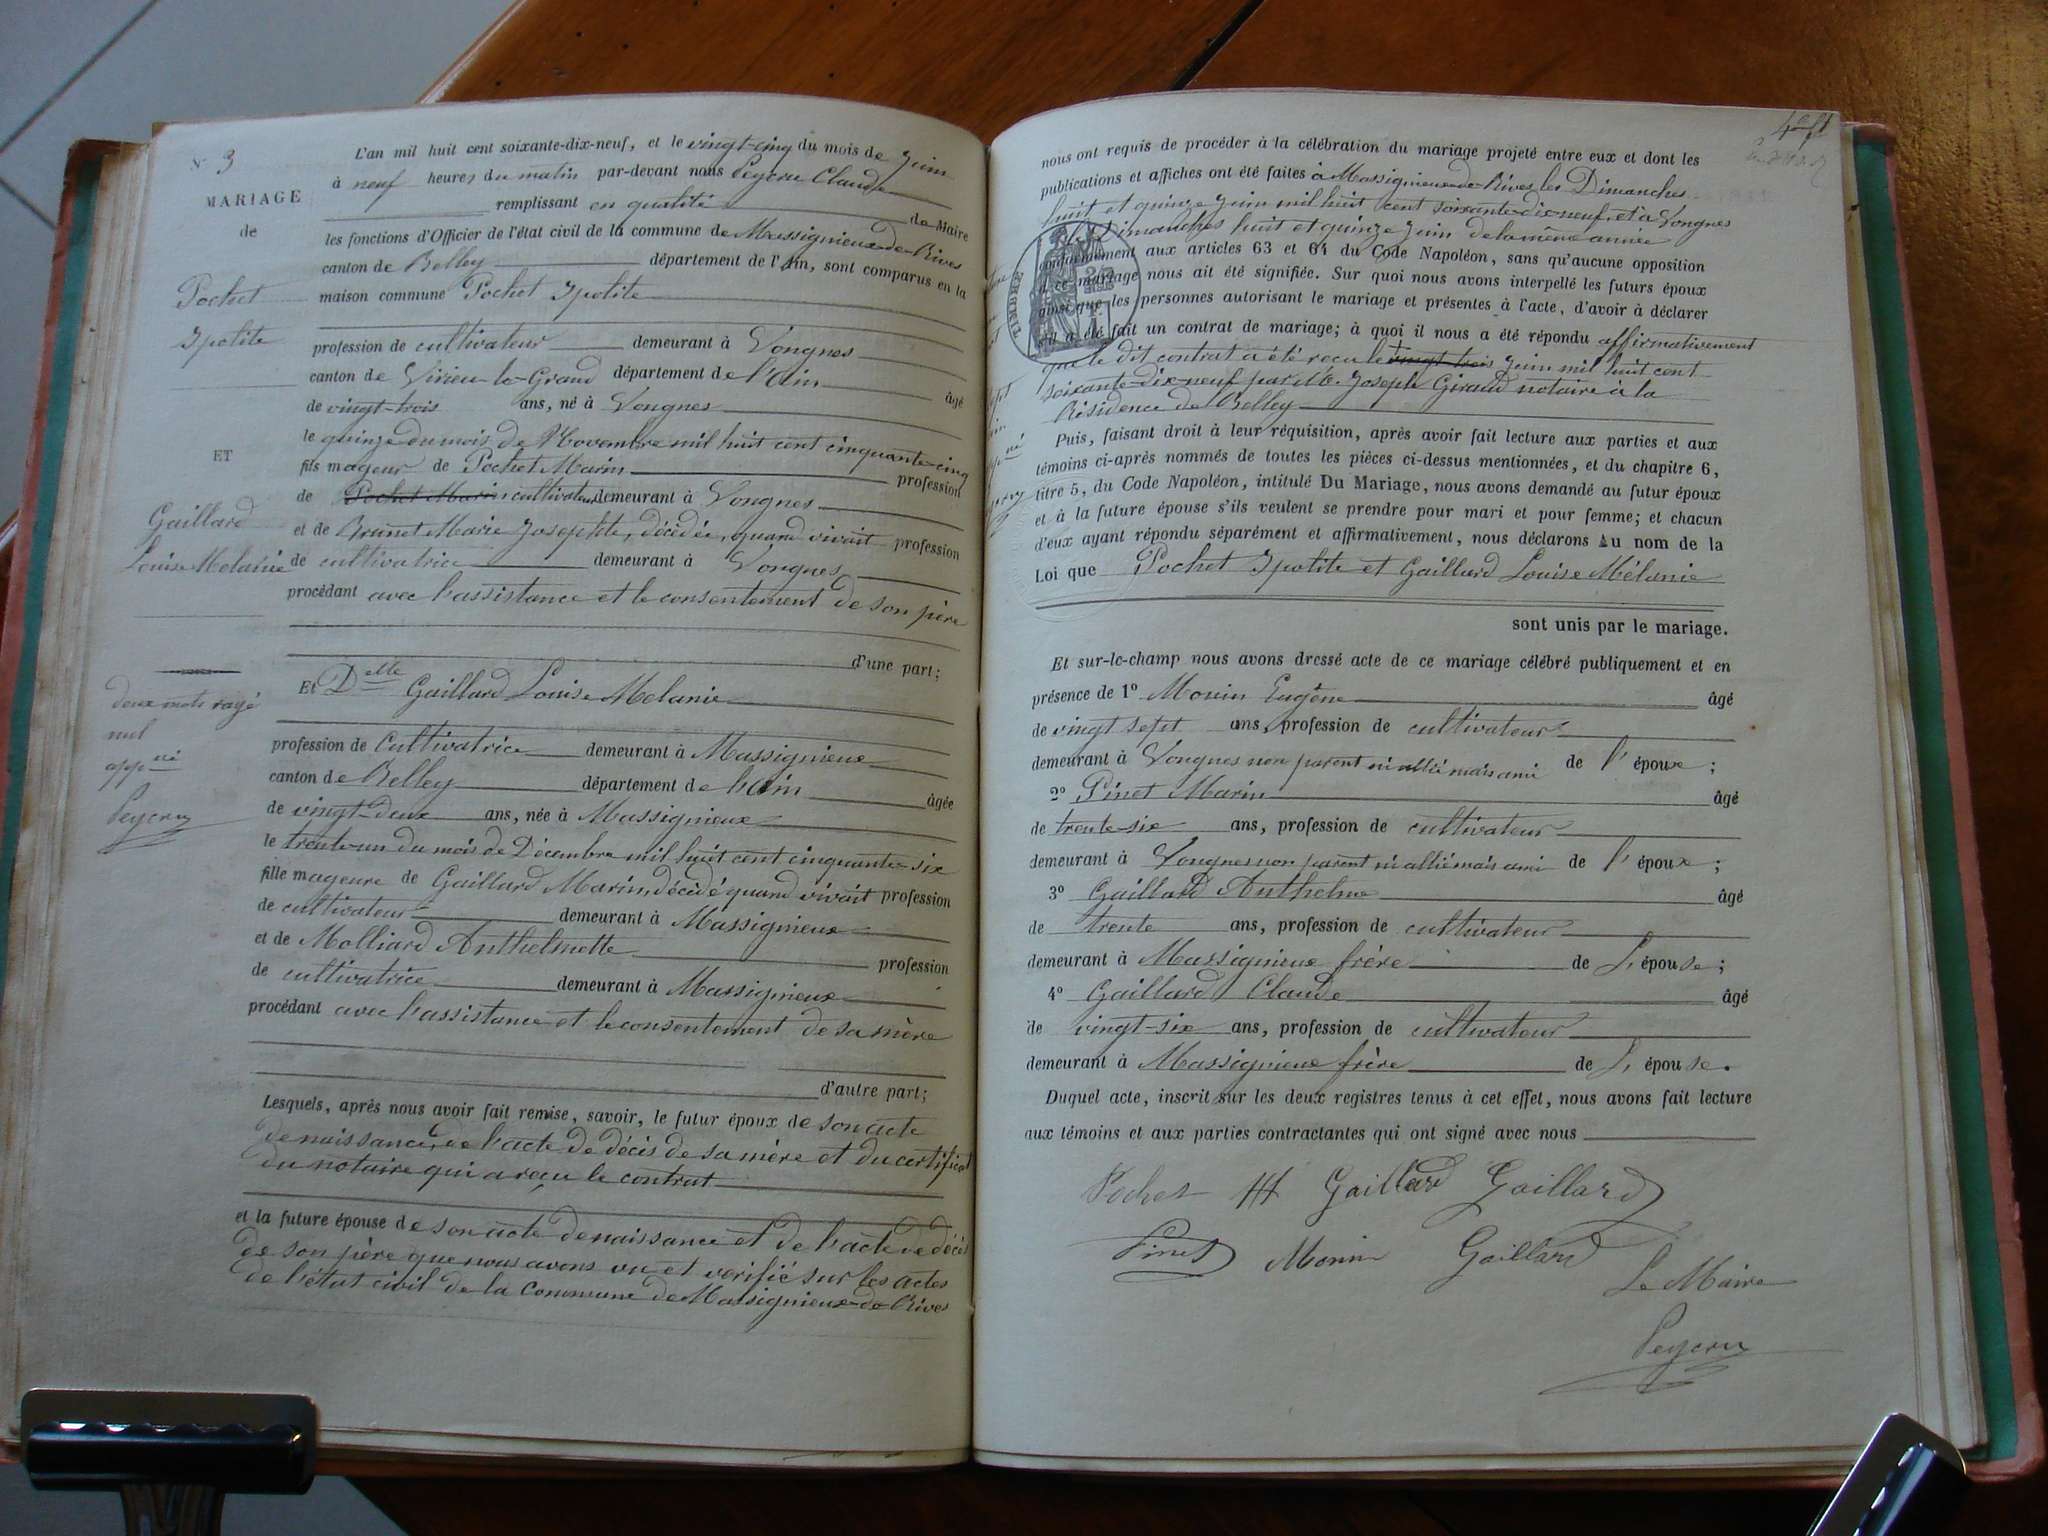 N° 3
MARIAGE
de
Pochet
Ipolite
ET
Gaillard
Louise Melanie
deux mots rayé
nul
appvé
Peycru
L'an mil huit cent soixante-dix-neuf, et le vingt-cinq du mois de Juin
à neuf heures du matin par-devant nous Peycru Claude
remplissant en qualité de Maire
les fonctions d'Officier de l'état civil de la commune de Massignieux-de-Rives
canton de Belley département de l'Ain, sont comparus en la
maison commune Pochet Ipolite
profession de cultivateur demeurant à Vongnes
canton de Virieu-le-Grand département de l'Ain âgé
de vingt-trois ans, né à Vongnes
le quinze du mois de Novembre mil huit cent cinquante-cinq
fils mageur de Pochet Marin profession
de Pochet Marin cultivateur demeurant à Vongnes
et de Brunet Marie Josephte, décédée, quand vivait profession
de cultivatrice demeurant à Vongnes
procédant avec l'assistance et le consentement de son père
d'une part;
Et Delle Gaillard Louise Melanie
profession de cultivatrice demeurant à Massignieux
canton de Belley département de l'Ain âgée
de vingt-deux ans, née à Massignieux
le trente-un du mois de Décembre mil huit cent cinquante-six
fille mageure de Gaillard Marin décédé quand vivait profession
de cultivateur demeurant à Massignieux
et de Molliard Anthelmette profession
de cultivatrice demeurant à Massignieux
procédant avec l'assistance et le consentement de sa mère
d'autre part;
Lesquels, après nous avoir fait remise, savoir, le futur époux de son acte
de naissance, de l'acte de décès de sa mère et du certificat
du notaire qui a reçu le contrat
et la future épouse de son acte de naissance et de l'acte de décès
de son père que nous avons vu et verifié sur les actes
de l'état civil de la commune de Massignieux-de-Rives
nous ont requis de procéder à la célébration du mariage projeté entre eux et dont les
publications et affiches ont été faites à Massignieux-de-Rives les Dimanches
huit et quinze Juin mil huit cent soixante-dix-neuf, et à Vongnes
les Dimanches huit et quinze Juin de la même année
conformément aux articles 63 et 64 du Code Napoléon, sans qu'aucune opposition
à ce mariage nous ait été signifiée. Sur quoi nous avons interpellé les futurs époux
ainsi que les personnes autorisant le mariage et présentes à l'acte, d'avoir à déclarer
s'il a été fait un contrat de mariage; à quoi il nous a été répondu affirmativement
que le dit contrat a été reçu le vingt trois Juin mil huit cent
soixante-dix-neuf par Me. Joseph Giraud notaire à la
Résidence de Belley
TIMBRE
Puis, faisant droit à leur réquisition, après avoir fait lecture aux parties et aux
témoins ci-après nommés de toutes les pièces ci-dessus mentionnées, et du chapitre 6,
titre 5, du Code Napoléon, intitulé Du Mariage, nous avons demandé au futur époux
et à la future épouse s'ils veulent se prendre pour mari et pour femme; et chacun
d'eux ayant répondu séparément et affirmativement, nous déclarons Au nom de la
Loi que Pochet Ipolite et Gaillard Louise Mélanie
sont unis par le mariage.
Et sur-le-champ nous avons dressé acte de ce mariage célébré publiquement et en
présence de 1° Monin Eugène âgé
de vingt sept ans, profession de cultivateur
demeurant à Vongnes non parent ni allié mais ami de l'époux;
2° Pinet Marin âgé
de trente-six ans, profession de cultivateur
demeurant à Vongnes non parent ni allié mais ami de l'époux;
3° Gaillard Anthelme âgé
de trente ans, profession de cultivateur
demeurant à Massignieux frère de L'épouse;
4° Gaillard Claude âgé
de vingt-six ans, profession de cultivateur
demeurant à Massignieux frère de L'épouse.
Duquel acte, inscrit sur les deux registres tenus à cet effet, nous avons fait lecture
aux témoins et aux parties contractantes qui ont signé avec nous
Pochet Gaillard Gaillard
Pinet Monin Gaillard
Le Maire
Peycru